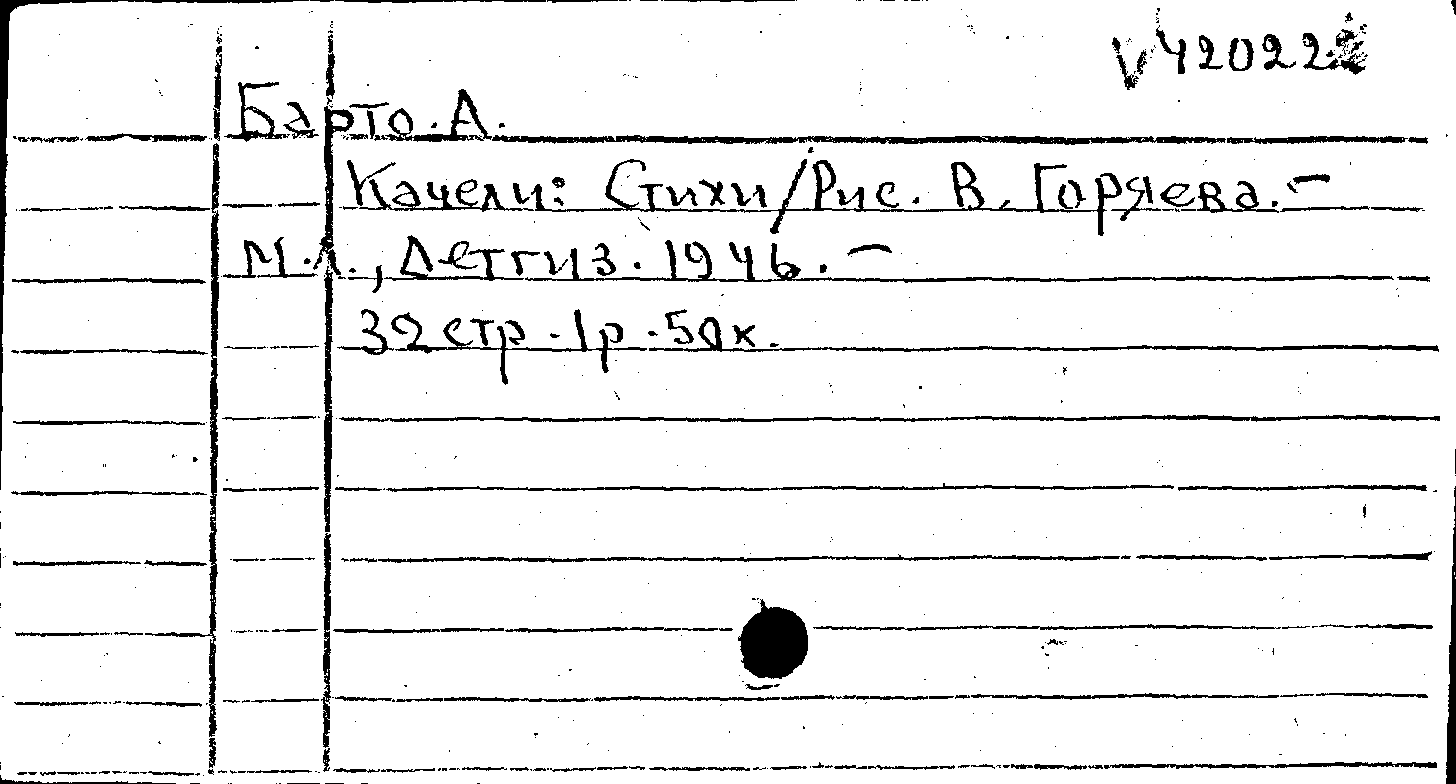 V 42022
Барто. А.
Качели: Стихи/Рис. В. Горяева.–
М.Л., Детгиз. 1946. –
32 стр. 1р. 50к.